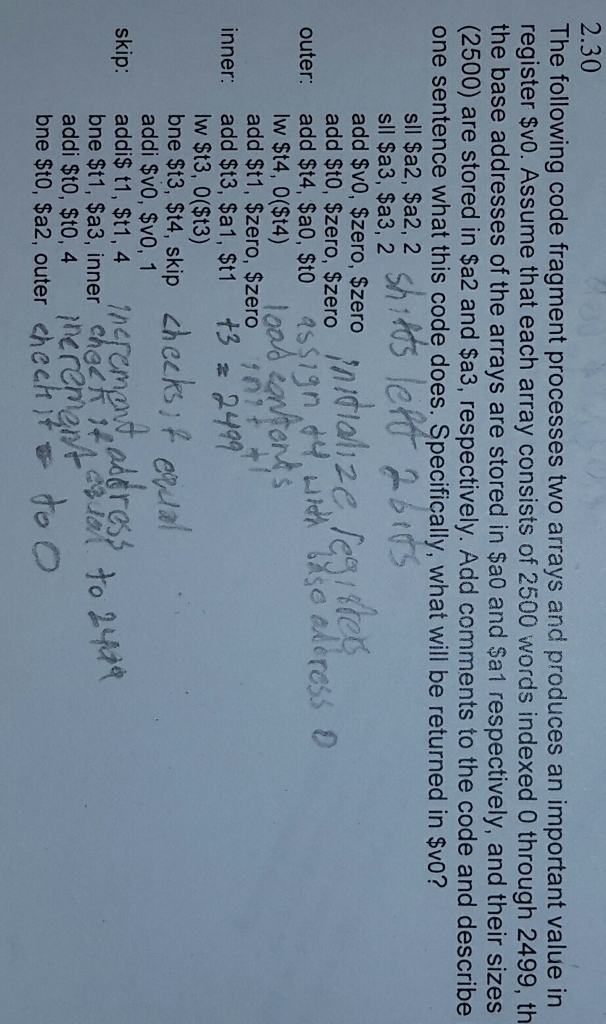 2.30
The following code fragment processes two arrays and produces an important value in
register $v0. Assume that each array consists of 2500 words indexed 0 through 2499, th
the base addresses of the arrays are stored in $a0 and $a1 respectively, and their sizes
(2500) are stored in $a2 and $a3, respectively. Add comments to the code and describe
one sentence what this code does. Specifically, what will be returned in $v0?
sll $a2, $a2, 2
sll $a3, $a3, 2 shifts left 2 bits
add $v0, $zero, $zero
add $t0, $zero, $zero initialize registers
outer: add $t4, $a0, $t0 assign t4 with base address 0
lw $t4, 0($t4) load contents
add $t1, $zero, $zero init t1
inner: add $t3, $a1, $t1 t3 = 2499
lw $t3, 0($t3)
bne $t3, $t4, skip checks if equal
addi $v0, $v0, 1
skip: addi$ t1, $t1, 4 increment address
bne $t1, $a3, inner check if equal to 2499
addi $t0, $t0, 4 increment
bne $t0, $a2, outer check if = to 0